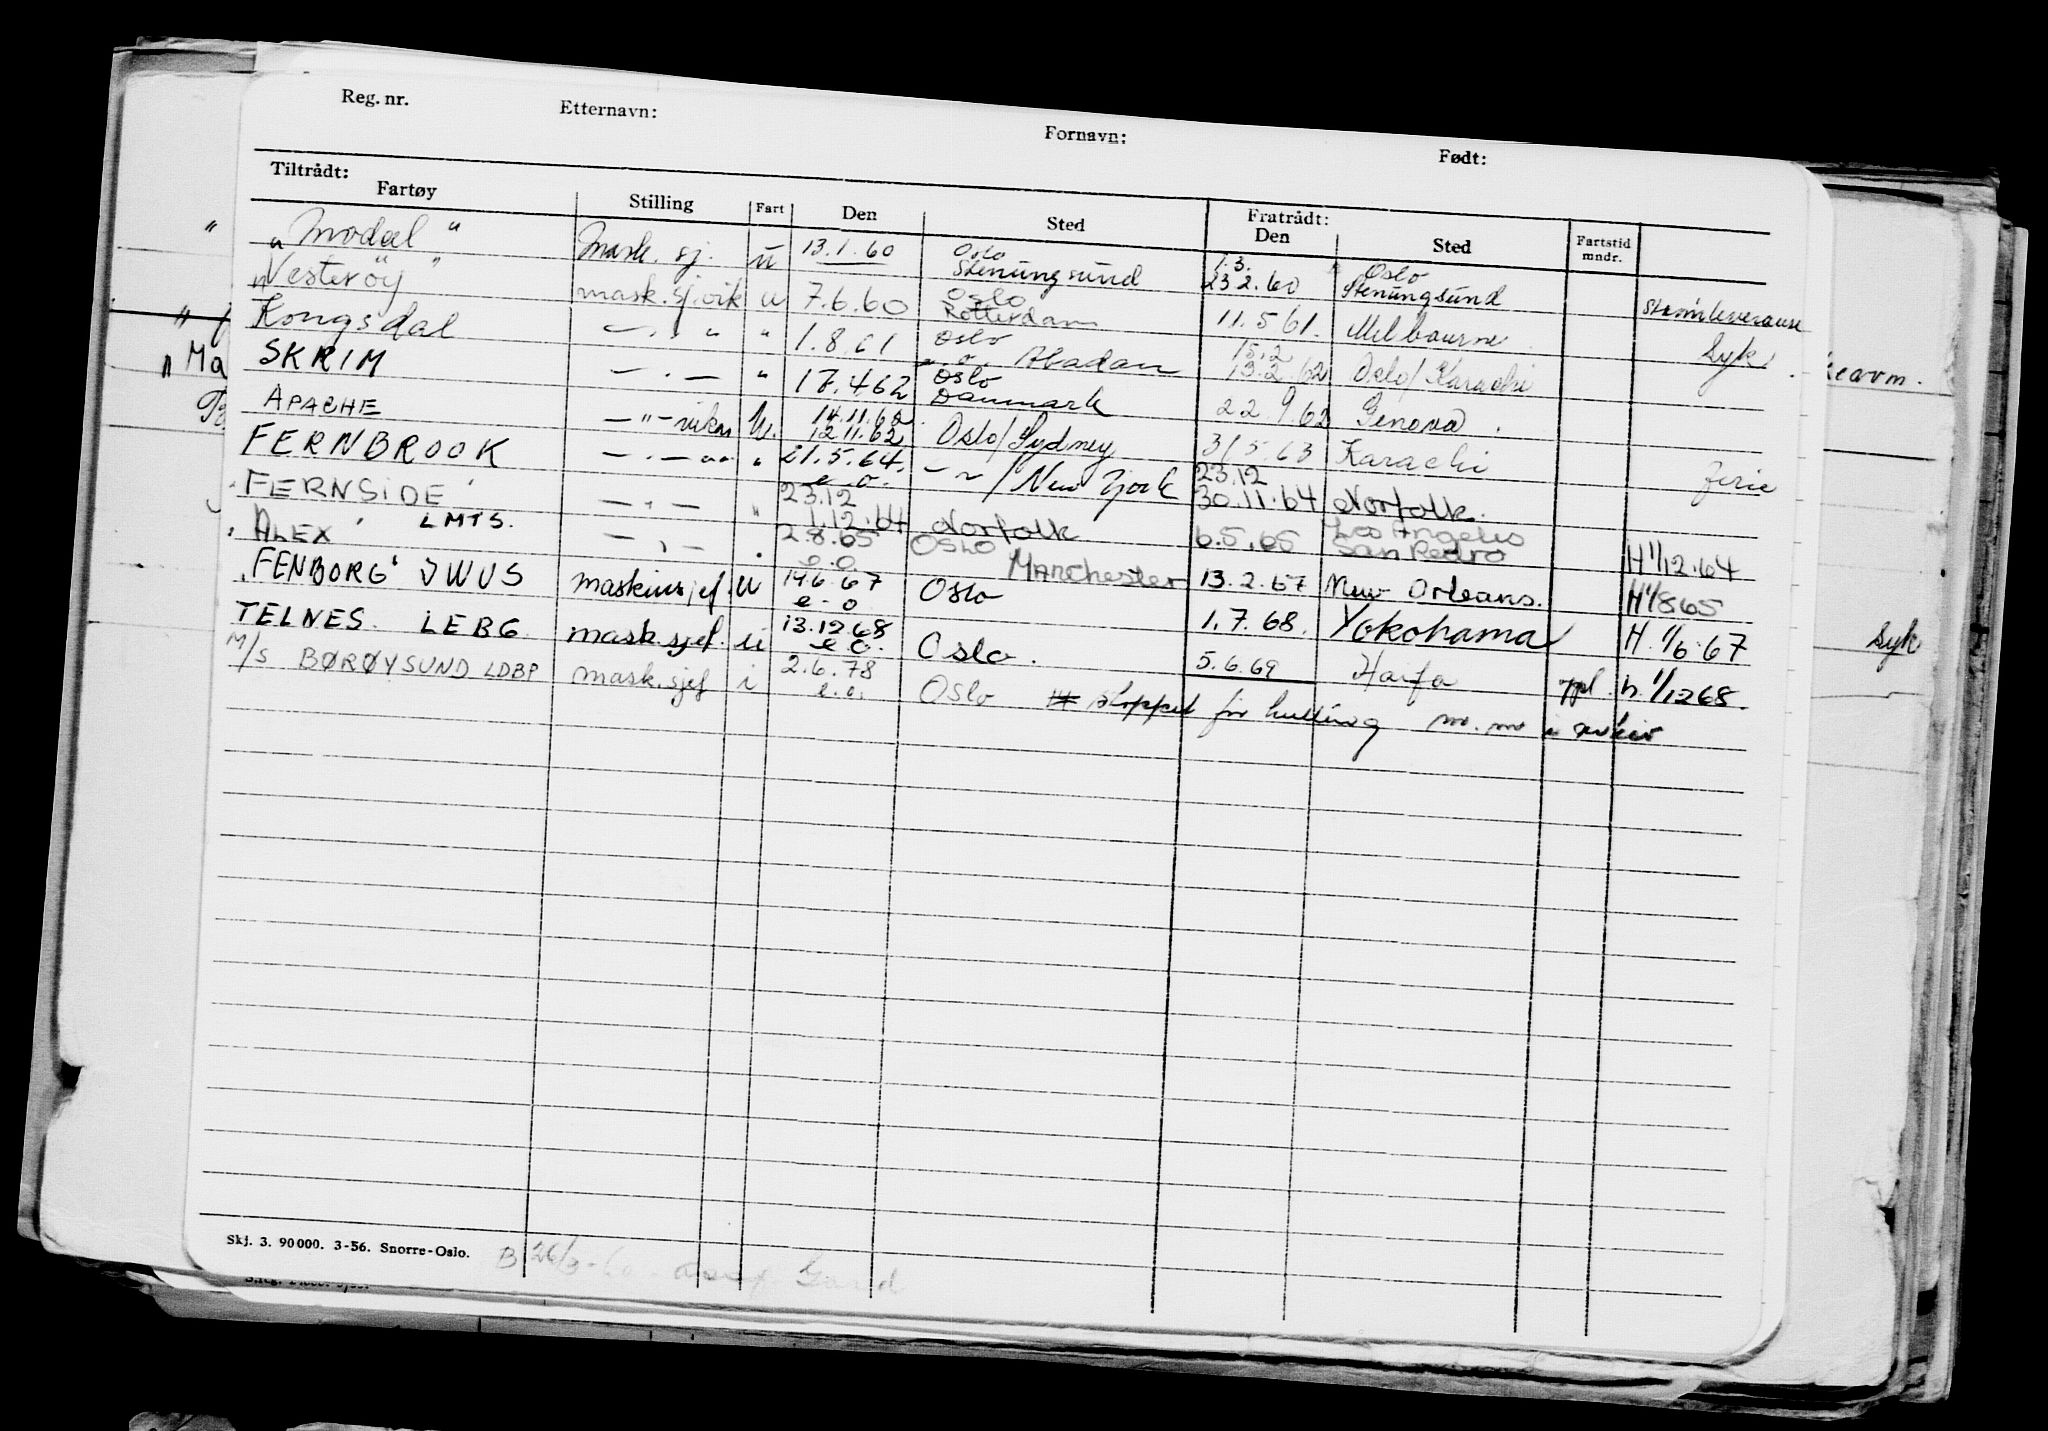 Reg. nr. Etternavn: Fornavn: Født:
Tiltrådt: Fratrådt:
Fartøy Stilling Fart Den Sted Den Sted Fartstid mndr.
"Modal" Mask. sj. u 13.1.60 Oslo Stenungsund 1.3. 23.2.60 Oslo Stenungsund
"Vesteröy" mask.sj.vik u 7.6.60 Oslo Rotterdam 11.5.61. Melbourne
Kongsdal — " — " 1.8.61 Oslo Abadan 15.2 13.2.62 Oslo/Karachi Syk.
SKRIM — " — " 17.4.62 Oslo Danmark 22.9.62 Genova.
APACHE — " — vikar u. 14.11.62 12.11.62 Oslo/Sydney 31.5.63 Karachi
FERNBROOK — " — " 21.5.64. e.o. — " — / New York 23.12 30.11.64 Norfolk. Ferie
FERNSIDE LMTS. — " — " 23.12 1.12.64 Norfolk 6.5.65 Los Angeles San Pedro H 1/12.64
ALEX — " — 2.8.65 e.o. OSLO Manchester 13.2.67 New Orleans. H 1/8 65
"FENBORG" JWUS maskinsjef. u 14.6.67 e.o Oslo 1.7.68. Yokohama H. 1/6.67 Syk
TELNES. LEBG. mask.sjef. u 13.12.68 e.o. Oslo. 5.6.69 Haifa h. 1/12 68.
M/S BØRØYSUND LDBP mask.sjef i 2.6.78 e.o. Oslo stoppet for m.m i
Skj. 3. 90000. 3-56. Snorre-Oslo.
B 26/3-60